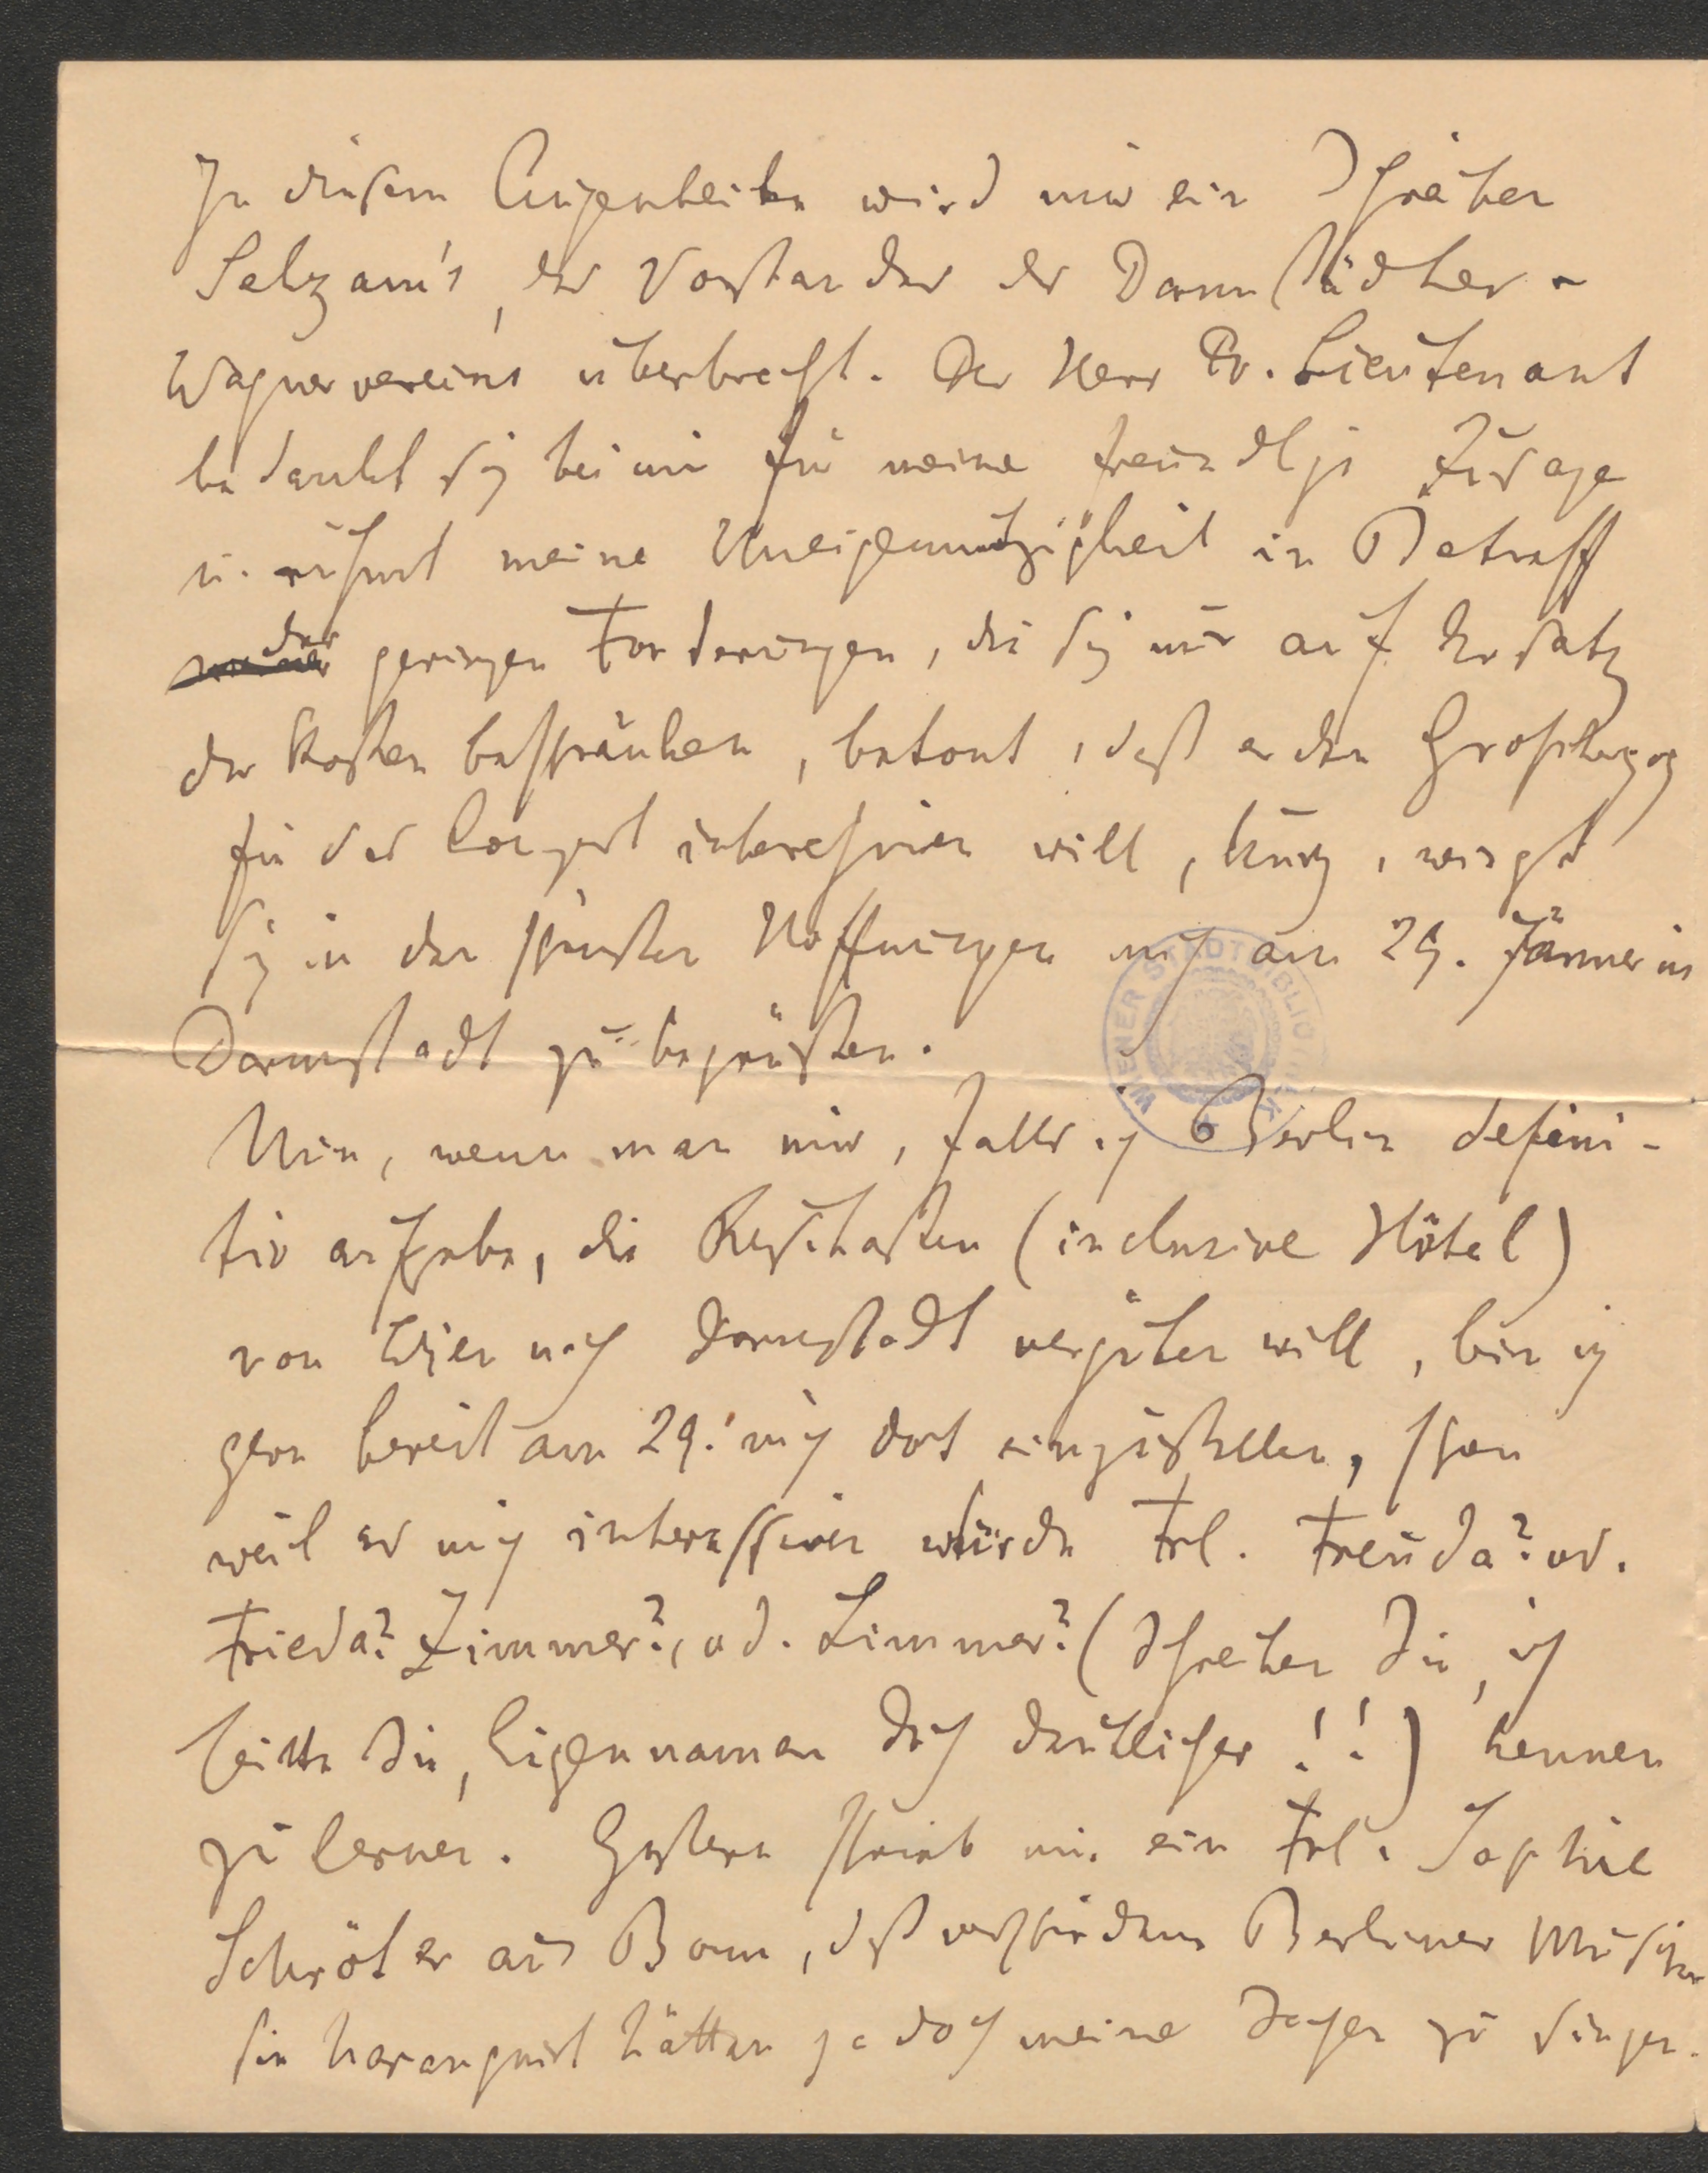 In diesem Augenblicke wird mir ein Schreiben
Selzam's, des Vorstandes des Darmstädter-
Wagnervereins überbracht. Der Herr Pr. Lieutenant
bedankt sich bei mir für meine freundliche Zusage
u. rühmt meine Uneigennützigkeit in Betreff
der geringen Forderungen, die sich nur auf Ersatz
der Kosten beschränken, betont, daß er den Großherzog
für das Concert interessiren will, kurz, wiegt
sich in den schönsten Hoffnungen mich am 29. Jänner in
Darmstadt zu begrüßen.
Nun, wenn man mir, falls ich Berlin defini-
tiv aufgebe, die Reisekosten (inclusive Hôtel)
von Wien nach Darmstadt vergüten will, bin ich
gern bereit am 29. mich dort einzustellen, schon
weil es mich interessiren würde Frl. Freuda? od.
Frieda? Zimmer?, od. Limmer? (Schreibe Du, ich
bitte Dir, Eigennamen doch deutlicher!!) kennen
zu lernen. Gestern schrieb mir ein Frl. Sophie
Schröter aus Bonn, daß verschiedene Berliner Musiker
sie haranguirt hätten ja doch meine Sachen zu singen.
WIENER STADTBIBLIOTHEK